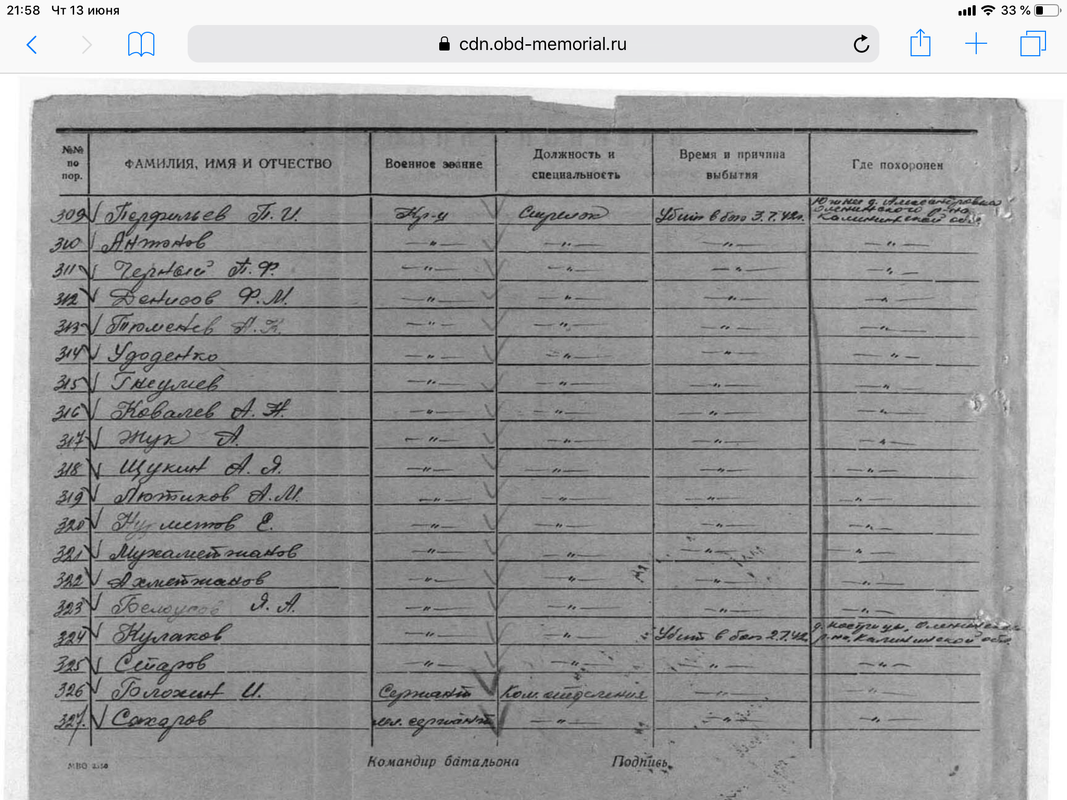 21:58 Чт 13 июня 33 %
cdn.obd-memorial.ru
№№ по пор. ФАМИЛИЯ, ИМЯ И ОТЧЕСТВО Военное звание Должность и специальность Время и причина выбытия Где похоронен
309 Перфильев П. И. Кр-ц Стрелок Убит в бою 3.7.42г. Южнее д. Оленинского р-на Калининской обл.
310 Антонов —"— —"— —"— —"—
311 Черный П. Ф. —"— —"— —"— —"—
312 Денисов Ф. М. —"— —"— —"— —"—
313 Тюменев А. К. —"— —"— —"— —"—
314 Удоденко —"— —"— —"— —"—
315 —"— —"— —"— —"—
316 Ковалев А. Н. —"— —"— —"— —"—
317 Жук А. —"— —"— —"— —"—
318 Щукин А. Я. —"— —"— —"— —"—
319 Лютиков А. М. —"— —"— —"— —"—
320 Е. —"— —"— —"— —"—
321 Мухаметжанов —"— —"— —"— —"—
322 Ахметжанов —"— —"— —"— —"—
323 Белоусов Я. А. —"— —"— —"— —"—
324 Кулаков —"— —"— Убит в бою 2.7.42г. д. Кострицы, Оленинский р-на, Калининской обл.
325 Старов —"— —"— —"— —"—
326 Голохин И. Сержант Ком. отделения —"— —"—
327. Сахаров мл. сержант —"— —"— —"—
МВО
Командир батальона Подпись